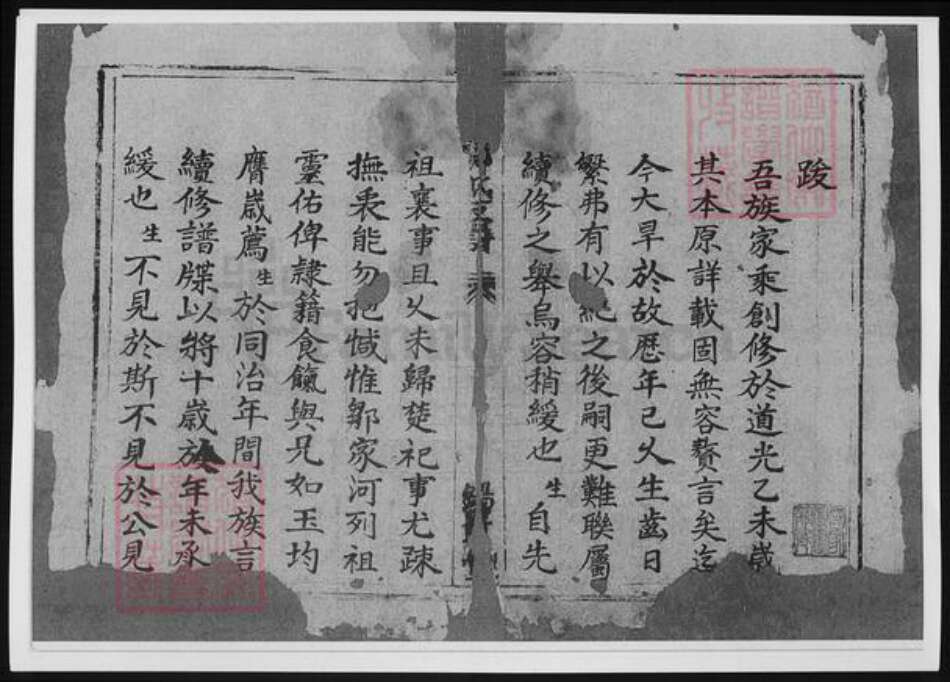 跋
吾族家乘創修於道光乙未歲
其本原詳載固無容贅言矣迄
今大旱於故歷年已久生齒日
繁弗有以紀之後嗣更難聯屬
續修之舉烏容稍緩也生自先
氏支譜
祖襄事且久未歸楚祀事尤疎
撫衷能勿抱憾惟鄒家河列祖
靈佑俾隷籍食餼與兄如玉均
膺歲薦生於同治年間我族言
續修譜牒以將十歲放年未承
緩也生不見於斯不見於公見